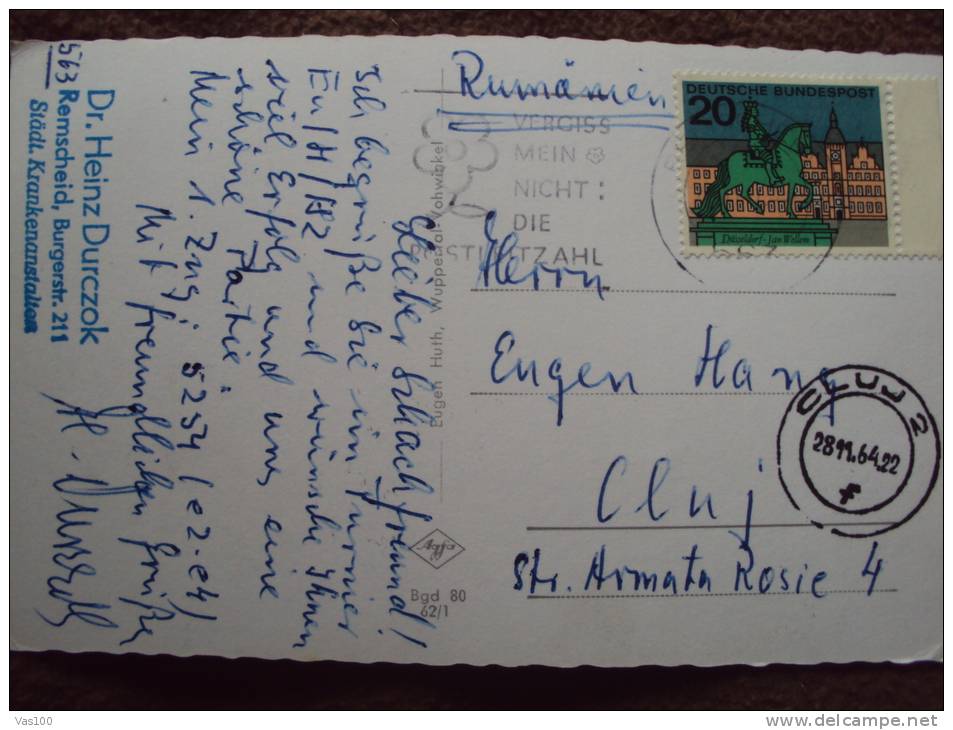 Dr. Heinz Durczok
563 Remscheid, Burgerstr. 211
Städt. Krankenanstalten
Lieber Schachfreund!
Ich begrüße Sie im Turnier
EU/H/182 und wünsche Ihnen
viel Erfolg und uns eine
schöne Partie.
Mein 1. Zug: 5254 (e2-e4)
Mit freundlichen Grüßen
H. Durczok
Eugen Huth, Wuppertal-Vohwinkel
Agfa
Bgd 80
62/1
Rumänien
VERGISS
MEIN
NICHT:
DIE
POSTLEITZAHL
DEUTSCHE BUNDESPOST
20
Düsseldorf-Jan Wellem
Herrn
Eugen Hang
Cluj
Str. Armata Rosie 4
CLUJ 2
28 11. 64. 22
Vas100
www.delcampe.net